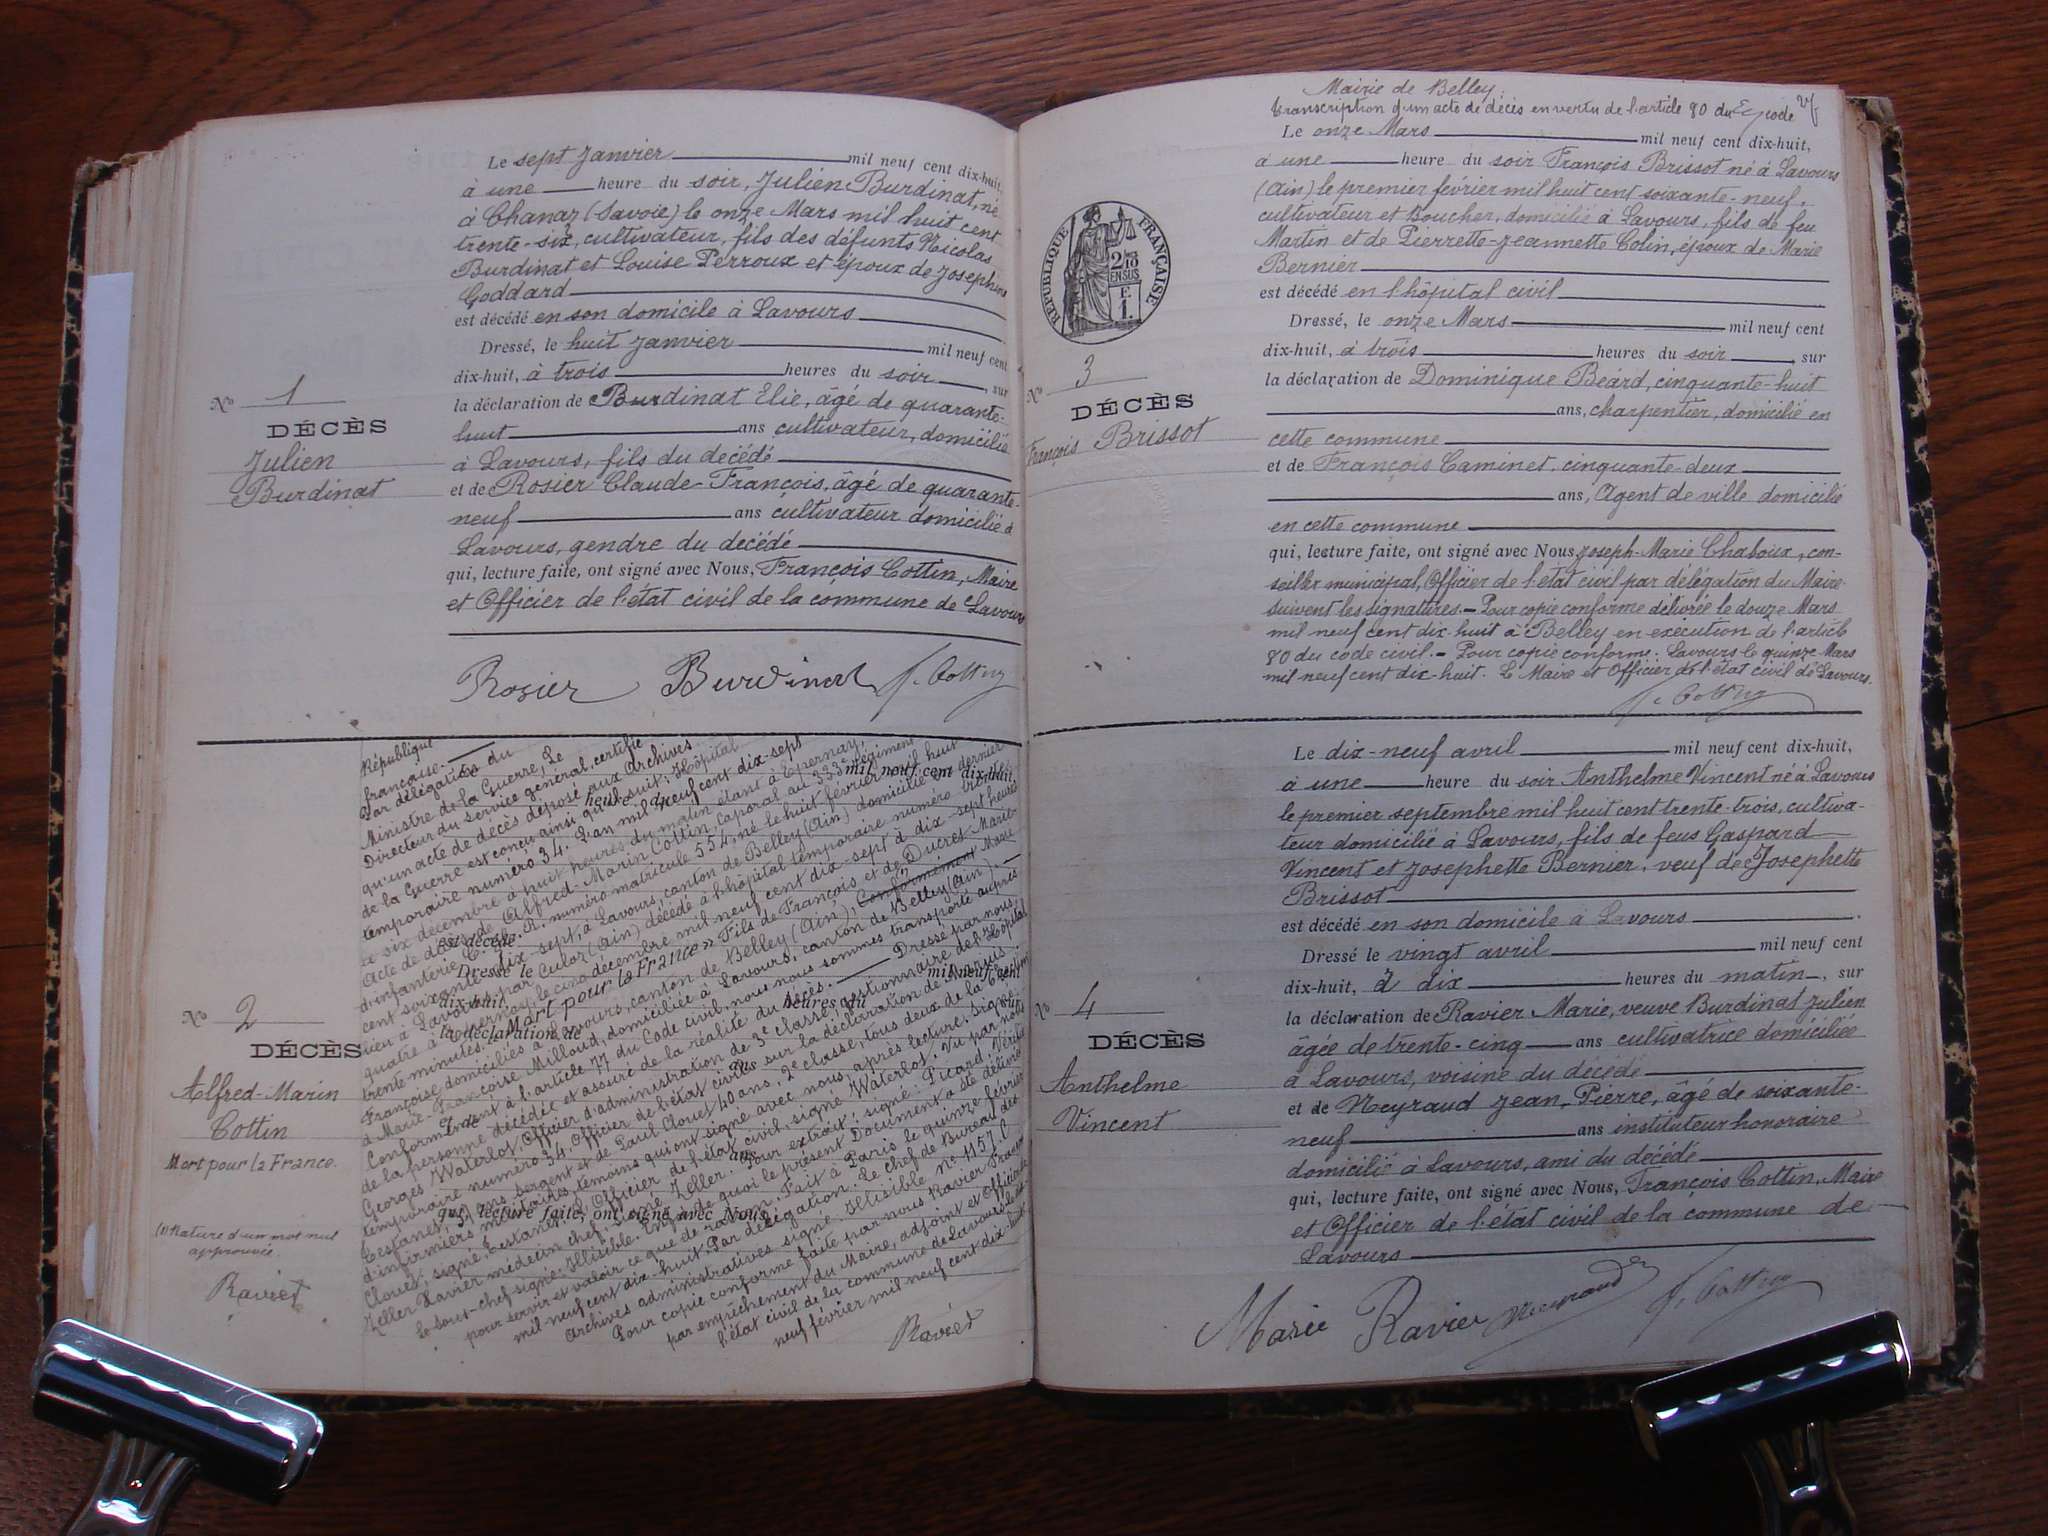 Le sept Janvier mil neuf cent dix-huit,
à une heure du soir, Julien Burdinat, né
à Chanaz (Savoie) le onze Mars mil huit cent
trente-six, cultivateur, fils des défunts Nicolas
Burdinat et Louise Perroux et époux de Josephine
Goddard
est décédé en son domicile à Lavours
Dressé, le huit Janvier mil neuf cent
dix-huit, à trois heures du soir, sur
la déclaration de Burdinat Elie, âgé de quarante-
huit ans cultivateur, domicilié
à Lavours, fils du décédé
et de Rosier Claude-François, âgé de quarante-
neuf ans cultivateur domicilié à
Lavours, gendre du décédé
qui, lecture faite, ont signé avec Nous, François Cottin, Maire
et Officier de l'état civil de la commune de Lavours
Rosier Burdinat f. Cottin
No 1
DÉCÈS
Julien
Burdinat
République
française.
Par délégation du
Ministre de la Guerre, Le
Directeur du service général, certifie
qu'un acte de décès déposé aux Archives
de la Guerre est conçu ainsi qu'il suit: Hôpital
temporaire numéro 34. L'an mil neuf cent dix-sept
le six décembre à huit heures du matin étant à Epernay,
Acte de décès de Alfred-Marin Cottin Caporal au 333e régiment
d'infanterie numéro matricule 554, né le huit février mil huit
cent soixante dix-sept, à Lavours, canton de Belley (Ain) domicilié en dernier
lieu à Lavours par Culoz (Ain) décédé à l'hôpital temporaire numéro trente
quatre à Epernay, le cinq décembre mil neuf cent dix-sept à dix-sept heures
trente minutes. "Mort pour la France" Fils de François et de Ducret Marie-
Françoise domiciliés à Lavours, canton de Belley (Ain);
à Marie-Françoise Milloud, domiciliée à Lavours, canton de Belley (Ain).
Conformément à l'article 77 du Code civil, nous nous sommes transporté auprès
de la personne décédée et assuré de la réalité du décès. Dressé par nous,
Georges Waterlot, Officier d'administration de 3e classe, gestionnaire de l'Hôpital
temporaire numéro 34, Officier de l'état civil, sur la déclaration de Marius
Lestanet, ans sergent et de Paul Clouet 40 ans, 2e classe, tous deux de la 6e section
d'infirmiers militaires, témoins qui ont signé avec nous, après lecture. Signé:
Clouet, signé Lestanet. L'Officier de l'état civil, signé Waterlot. Vu par nous
Zeller Xavier médecin chef signé Zeller. Pour extrait: signé: Picard. Vérifié
Le sous-chef signé: Illisible. En foi de quoi le présent Document a été délivré
pour servir et valoir ce que de raison. Fait à Paris le quinze février
mil neuf cent dix-huit. Par délégation. Le chef de Bureau des
Archives administratives signé: Illisible. No 1157.
Pour copie conforme faite par nous Ravier
par empêchement du Maire, adjoint et Officier de
l'état civil de la commune de Lavours le dix-
neuf février mil neuf cent dix-huit
Raviet
mil neuf cent dix-huit,
heure du
est décédé
Dressé le mil neuf cent
dix-huit heures du
la déclaration de
ans
qui, lecture faite, ont signé avec Nous
No 2
DÉCÈS
Alfred-Marin
Cottin
Mort pour la France.
(1) Rature d'un mot nul
approuvée.
Raviet
Mairie de Belley.
Transcription d'un acte de décès en vertu de l'article 80 du code
Le onze Mars mil neuf cent dix-huit,
à une heure du soir François Brissot né à Lavours
(Ain) le premier février mil huit cent soixante-neuf,
cultivateur et Boucher, domicilié à Lavours, fils de feu
Martin et de Pierrette-Jeannette Colin, époux de Marie
Bernier
est décédé en l'hôpital civil
Dressé, le onze Mars mil neuf cent
dix-huit, à trois heures du soir, sur
la déclaration de Dominique Béard, cinquante-huit
ans, charpentier, domicilié en
cette commune
et de François Caminet, cinquante-deux
ans, Agent de ville domicilié
en cette commune
qui, lecture faite, ont signé avec Nous, Joseph-Marie Chaboux, con-
seiller municipal, Officier de l'état civil par délégation du Maire
suivent les signatures.- Pour copie conforme délivrée le douze Mars
mil neuf cent dix-huit à Belley en exécution de l'article
80 du code civil.- Pour copie conforme. Lavours le quinze Mars
mil neuf cent dix-huit. Le Maire et Officier de l'état civil de Lavours.
f. Cottin
RÉPUBLIQUE FRANÇAISE
EN SUS
No 3
DÉCÈS
François Brissot
Le dix-neuf avril mil neuf cent dix-huit,
à une heure du soir Anthelme Vincent né à Lavours
le premier septembre mil huit cent trente-trois, cultiva-
teur domicilié à Lavours, fils de feus Gaspard
Vincent et Josephette Bernier, veuf de Josephette
Brissot
est décédé en son domicile à Lavours
Dressé le vingt avril mil neuf cent
dix-huit, à dix heures du matin, sur
la déclaration de Ravier Marie, veuve Burdinat Julien
âgée de trente-cinq ans cultivatrice domiciliée
à Lavours, voisine du décédé
et de Neyraud Jean-Pierre, âgé de soixante-
neuf ans instituteur honoraire
domicilié à Lavours, ami du décédé
qui, lecture faite, ont signé avec Nous, François Cottin, Maire
et Officier de l'état civil de la commune de
Lavours
Marie Ravier Neyraud f. Cottin
No 4
DÉCÈS
Anthelme
Vincent